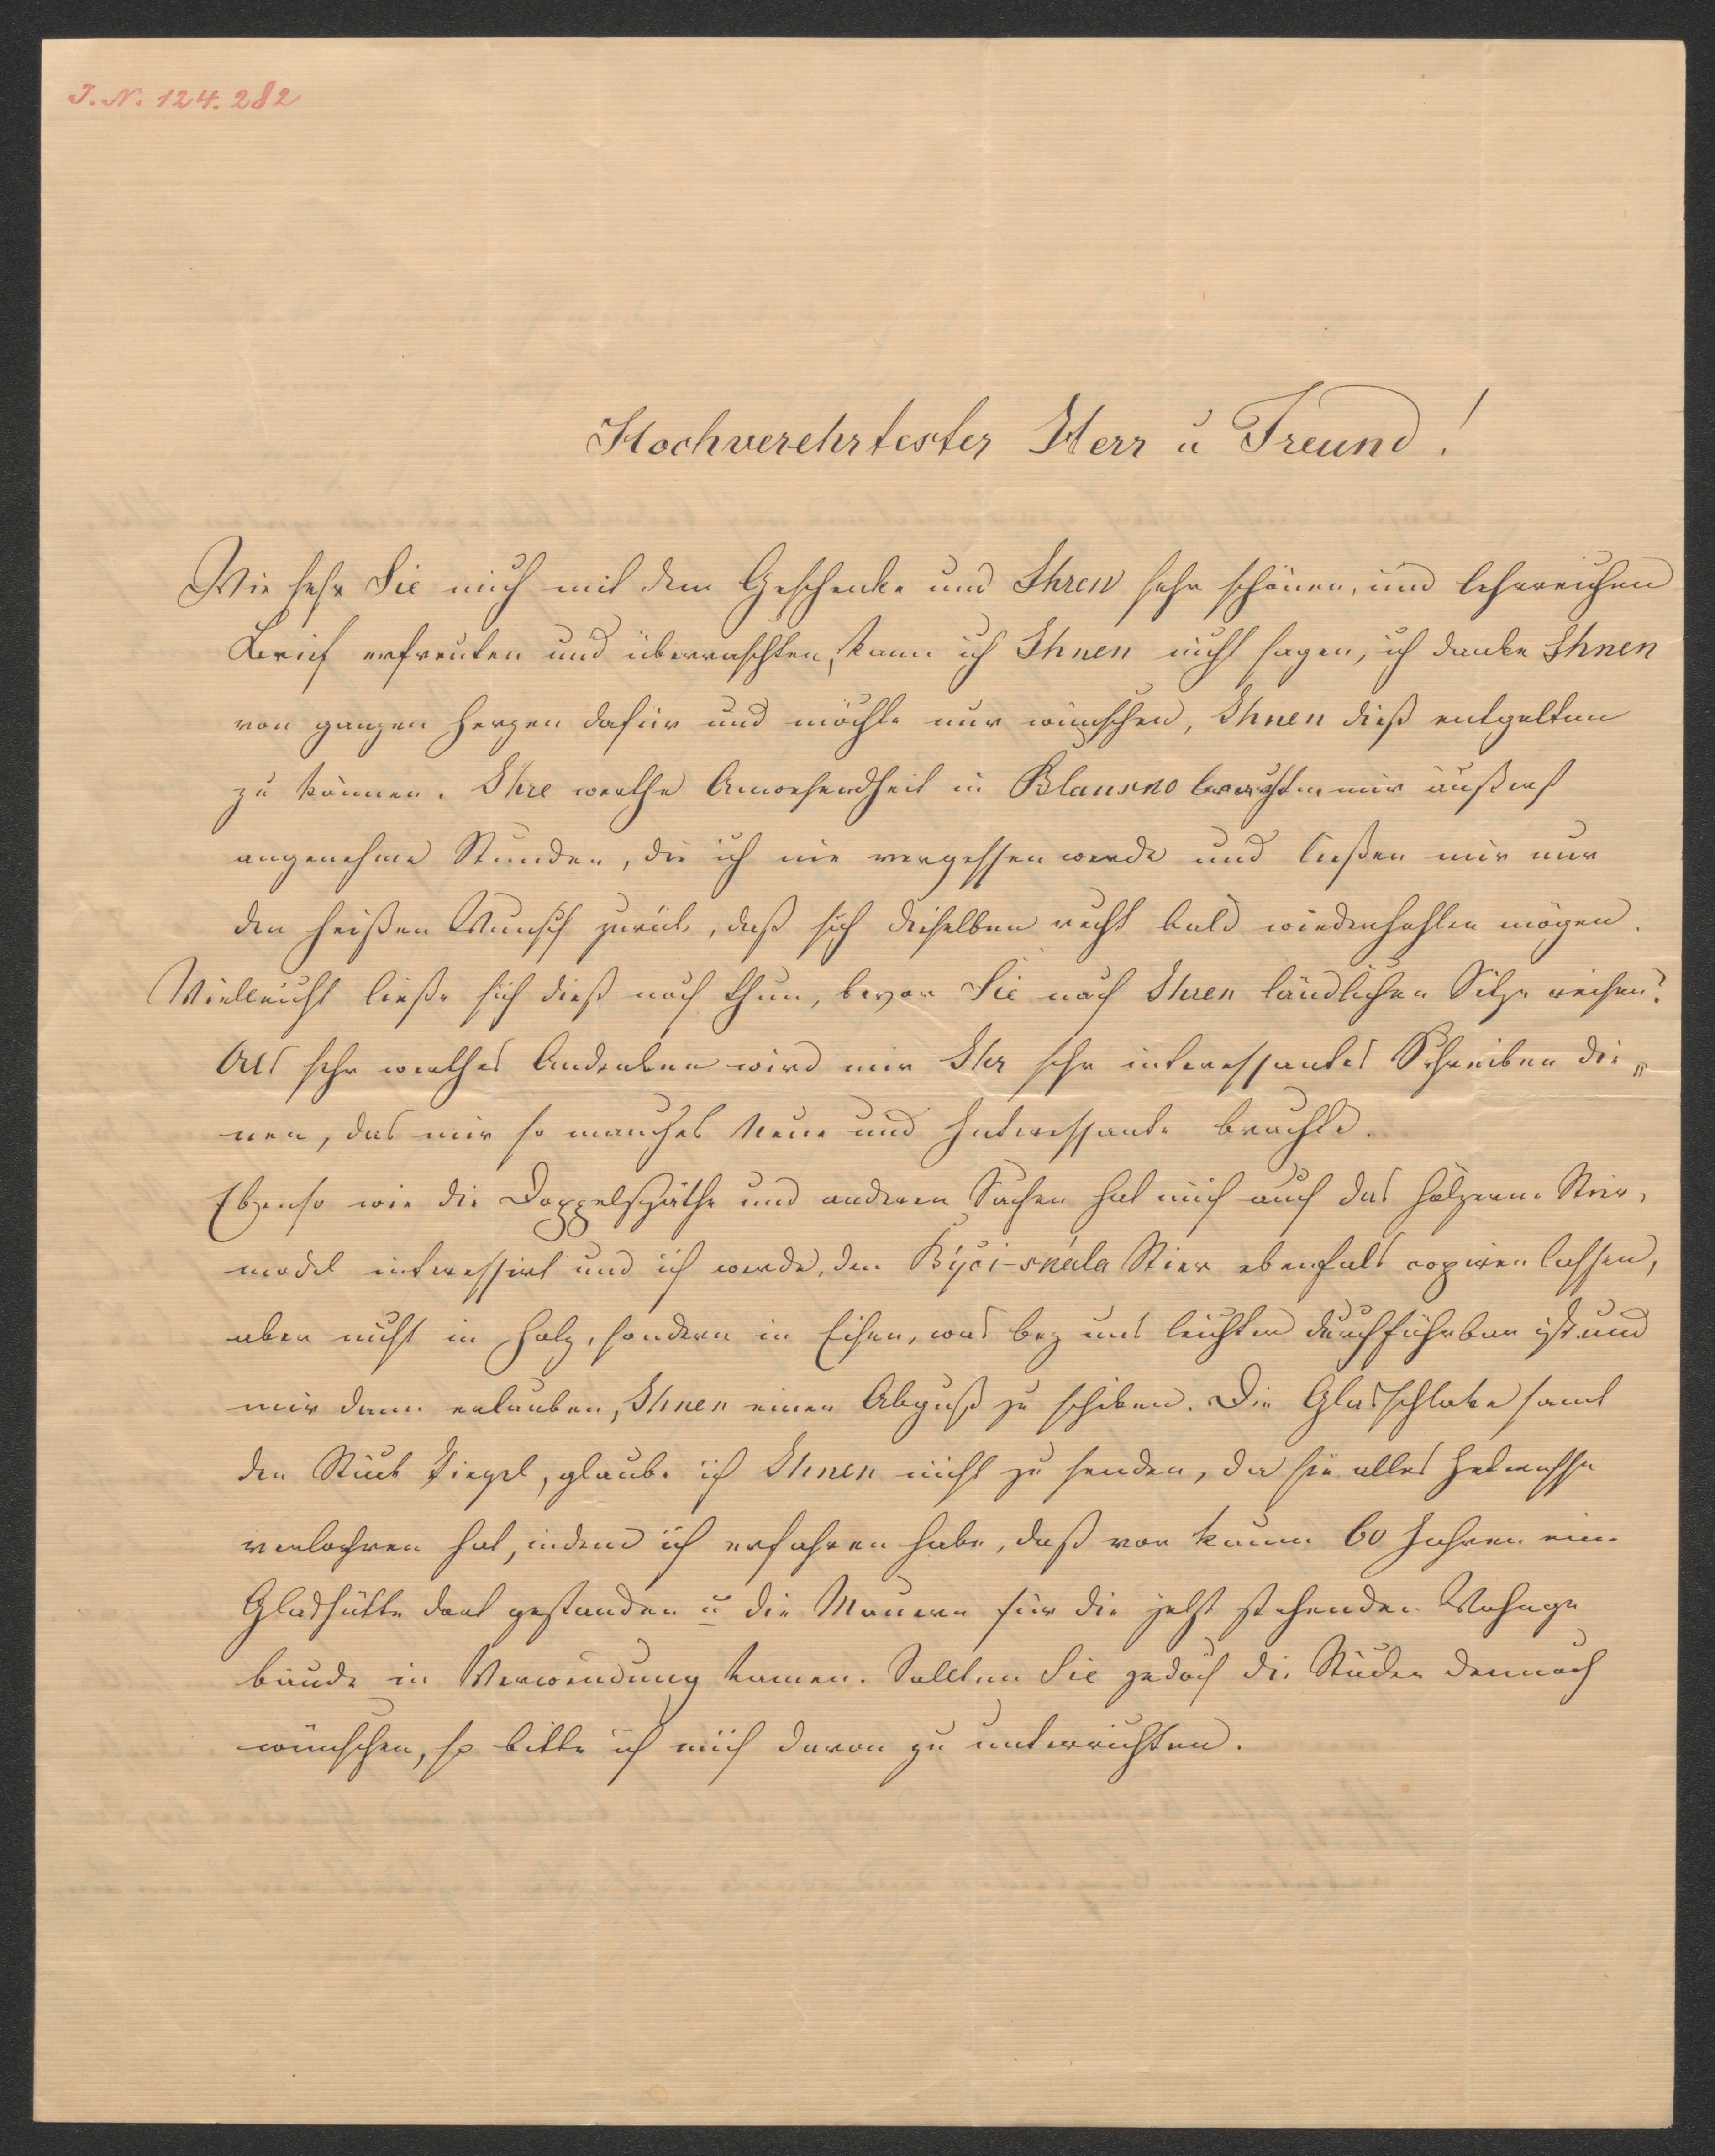 J. N. 124.282
Hochverehrtester Herr u Freund!
Wie sehr Sie mich mit dem Geschenke und Ihren sehr schönen, und lehrreichen
Brief erfreuten und überraschten, kann ich Ihnen nicht sagen, ich danke Ihnen
von ganzen Herzen dafür und möchte nur wünschen, Ihnen dieß entgelten
zu können. Ihre werthe Anwesendheit in Blansko brachten mir äußerst
angenehme Stunden, die ich nie vergessen werde und ließen mir nur
den heißen Wunsch zurük, daß sich dieselben recht bald wiederhohlen mögen.
Vielleicht ließe sich dieß noch thun, bevor Sie nach Ihren ländlichen Sitze reisen?
Als sehr werthes Andenken wird mir Ihr sehr interessantes Schreiben die„
nen, das mir so manches Neue und Interessante brachte.
Ebenso wie die Doppelspäthe und anderen Sachen hat mich auch das hölzerne Stier,
model interessirt und ich werde, den Býci-skála Stier ebenfals copiren lassen,
aber nicht in Holz, sondern in Eisen, was bey uns leichter durchführbar ist und
mir dann erlauben, Ihnen einen Abguß zu schiken. Die Glasschlake samt
den Stük Ziegel, glaube ich Ihnen nicht zu senden, da sie alles Interesse
verlohren hat, indem ich erfahren habe, daß vor kaum 60 Jahren eine
Glashütte dort gestanden u die Mauern für die jetzt stehenden Wohnge
bäude in Verwendung kamen. Sollten Sie jedoch die Stüke dennoch
wünschen, so bitte ich mich davon zu unterrichten.